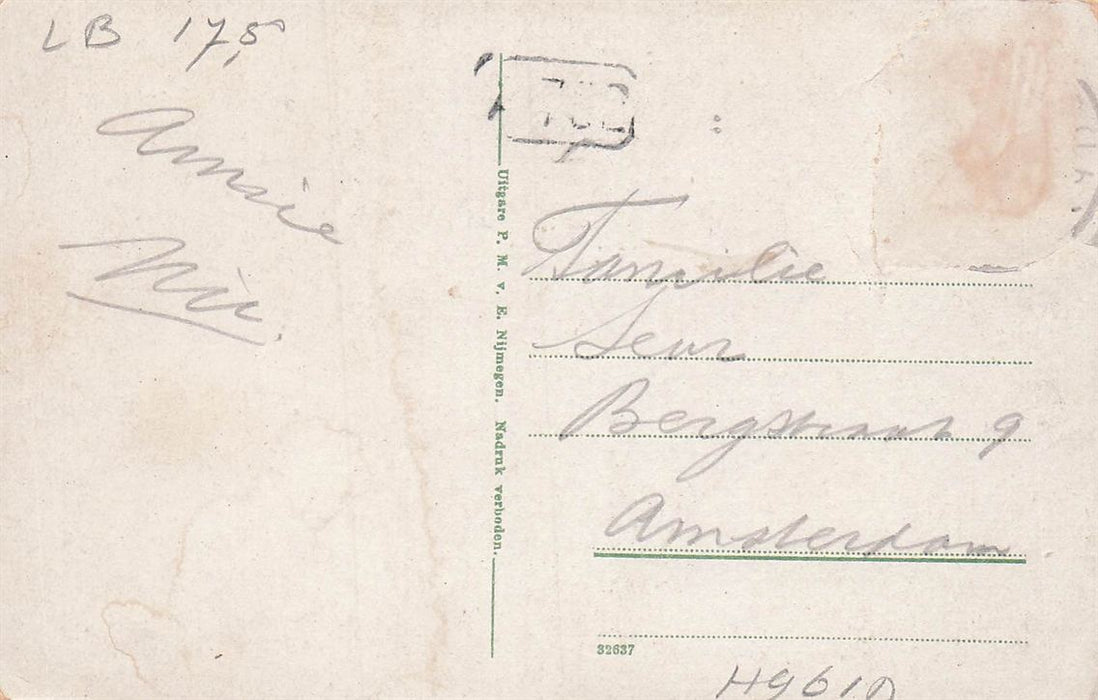 LB 175
Annie
Uitgave P. M. v. E. Nijmegen. Nadruk verboden.
Familie
Seur
Bergstraat 9
Amsterdam
32637
H961D